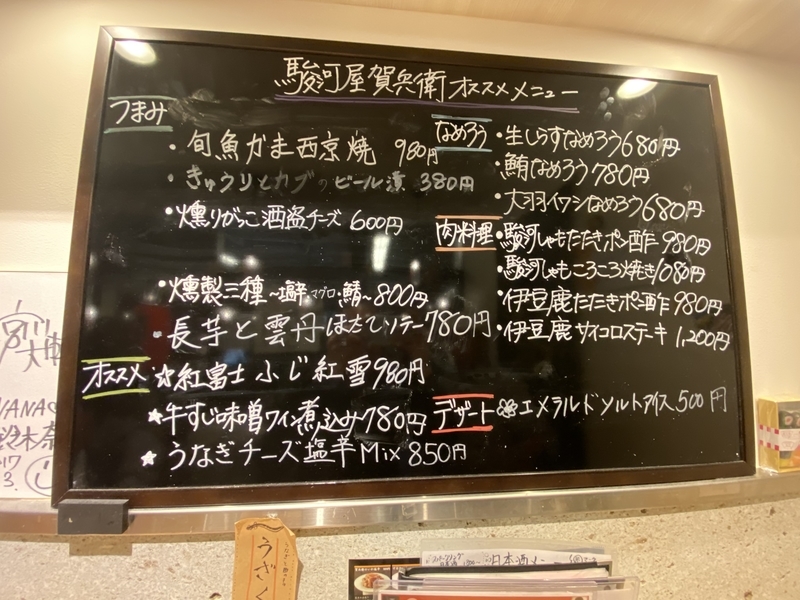 駿河屋賀兵衛オススメメニュー
つまみ
・旬魚かま西京焼 980円
・きゅうりとカブのビール漬 380円
・燻りがっこ酒盗チーズ 600円
・燻製三種〜塩辛・マグロ・鯖〜800円
・長芋と雲丹ほたてソテー780円
オススメ
☆紅富士ふじ紅雪980円
★牛すじ味噌ワイン煮込み780円
★うなぎチーズ塩辛Mix 850円
なめろう
・生しらすなめろう680円
・鮪なめろう780円
・大羽イワシなめろう680円
肉料理
・駿河しゃもたたきポン酢 980円
・駿河しゃもころころ焼き1080円
・伊豆鹿たたきポン酢 980円
・伊豆鹿サイコロステーキ 1,200円
デザート
エメラルドソルトアイス500円
うざく
日本酒